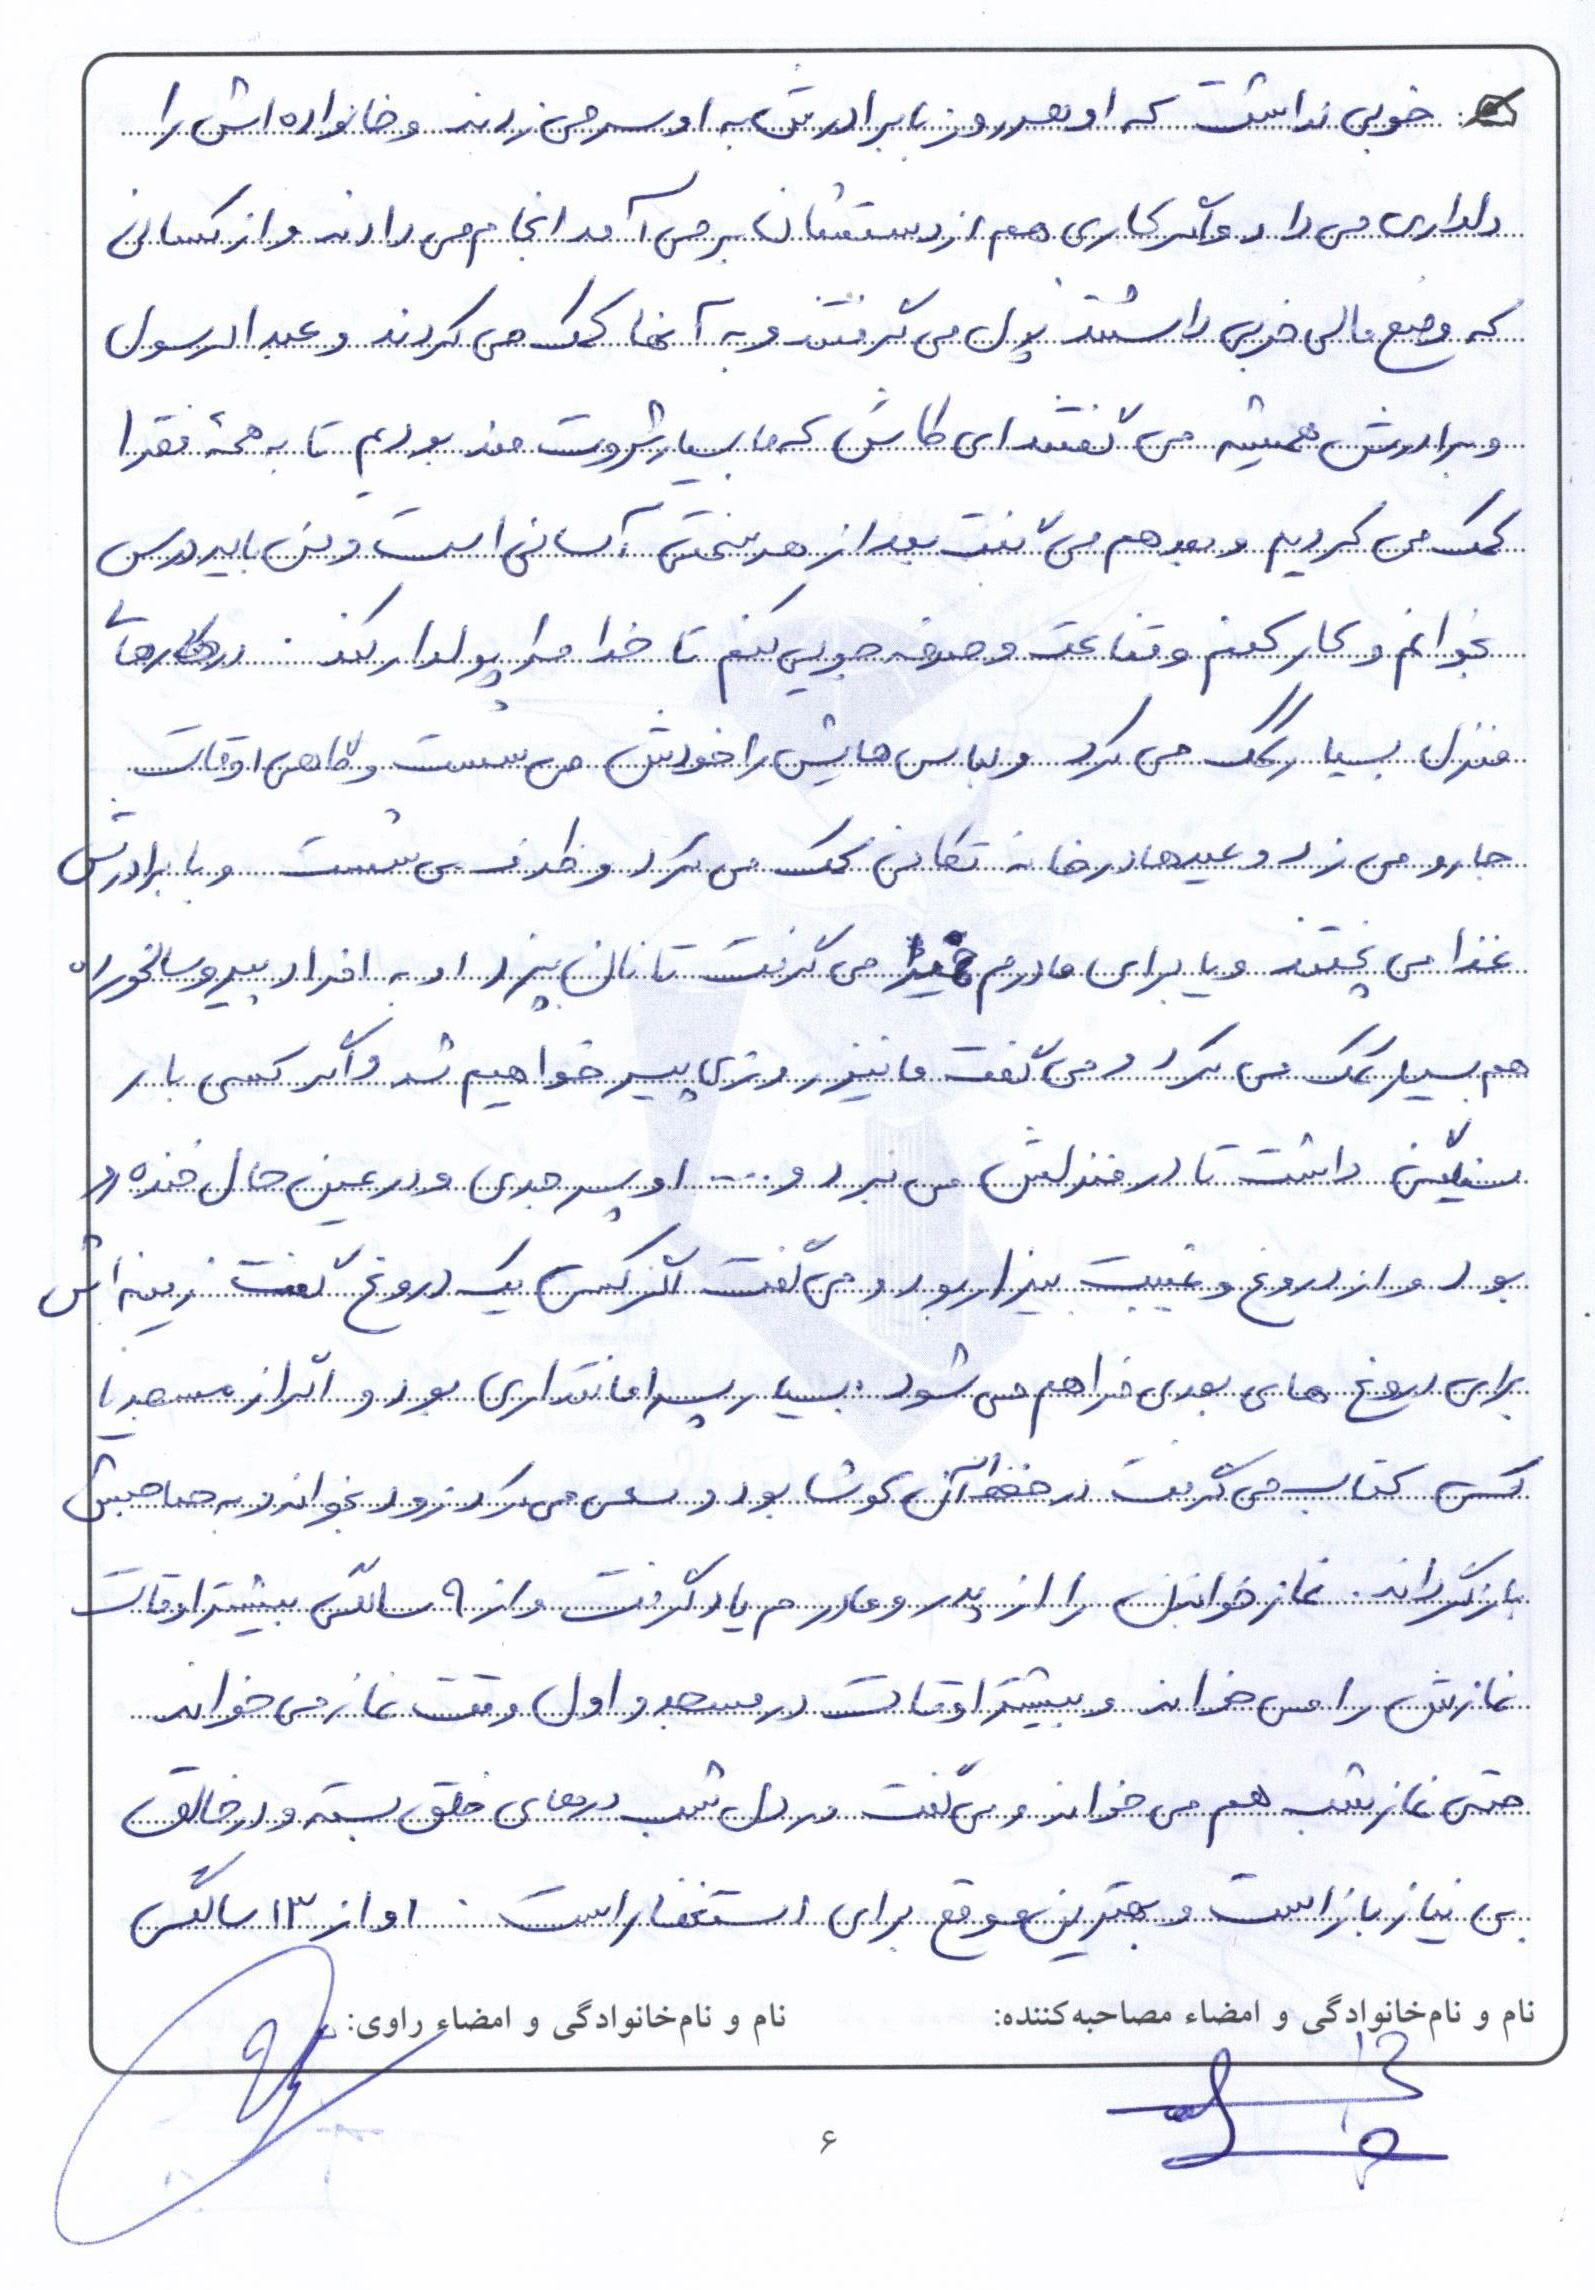 خوبی نداشت که او هر روز با برادرش به او سر می زدند و خانواده اش را
دلداری می داد و اگر کاری هم از دستشان بر می آمد انجام می دادند و از کسانی
که وضع مالی خوبی داشتند پول می گرفتند و به آنها کمک می کردند و عبدالرسول
و برادرش همیشه می گفتند ای کاش که ما بسیار ثروت مند بودیم تا به همۀ فقرا
کمک می کردیم و بعد هم می گفت بعد از هر سختی آسانی است و من باید درس
بخوانم و کار کنم و قناعت و صرفه جویی کنم تا خدا مرا پولدار کند . در کارهای
منزل بسیار کمک می کرد و لباس هایش را خودش می شست و گاهی اوقات
جارو می زد و عیدها در خانه تکانی کمک می کرد و ظرف می شست و با برادرش
غذا می پختند و یا برای مادرم خمیر می گرفت تا نان بپزد او به افراد پیر و سالخورده
هم بسیار کمک می کرد و می گفت ما نیز روزی پیر خواهیم شد و اگر کسی بار
سنگین داشت تا در منزلش می برد و .... او پسر جدی و در عین حال خنده رو
بود و از دروغ و غیبت بیزار بود و می گفت اگر کسی یک دروغ گفت زمینه اش
برای دروغ های بعدی فراهم می شود . بسیار پسر امانتداری بود و اگر از مسجد یا
کسی کتاب می گرفت در حفظ آن کوشا بود و سعی می کرد زود بخواند و به صاحبش
باز گرداند . نماز خواندن را از پدر و مادرم یاد گرفت و از ۹ سالگی بیشتر اوقات
نمازش را می خواند و بیشتر اوقات در مسجد و اول وقت نماز می خواند
حتی نماز شب هم می خواند و می گفت در دل شب درهای خلق بسته و در خالق
بی نیاز باز است و بهترین موقع برای استغفار است . او از ۱۳ سالگی
نام و نام‌خانوادگی و امضاء مصاحبه‌کننده: نام و نام‌خانوادگی و امضاء راوی:
۶